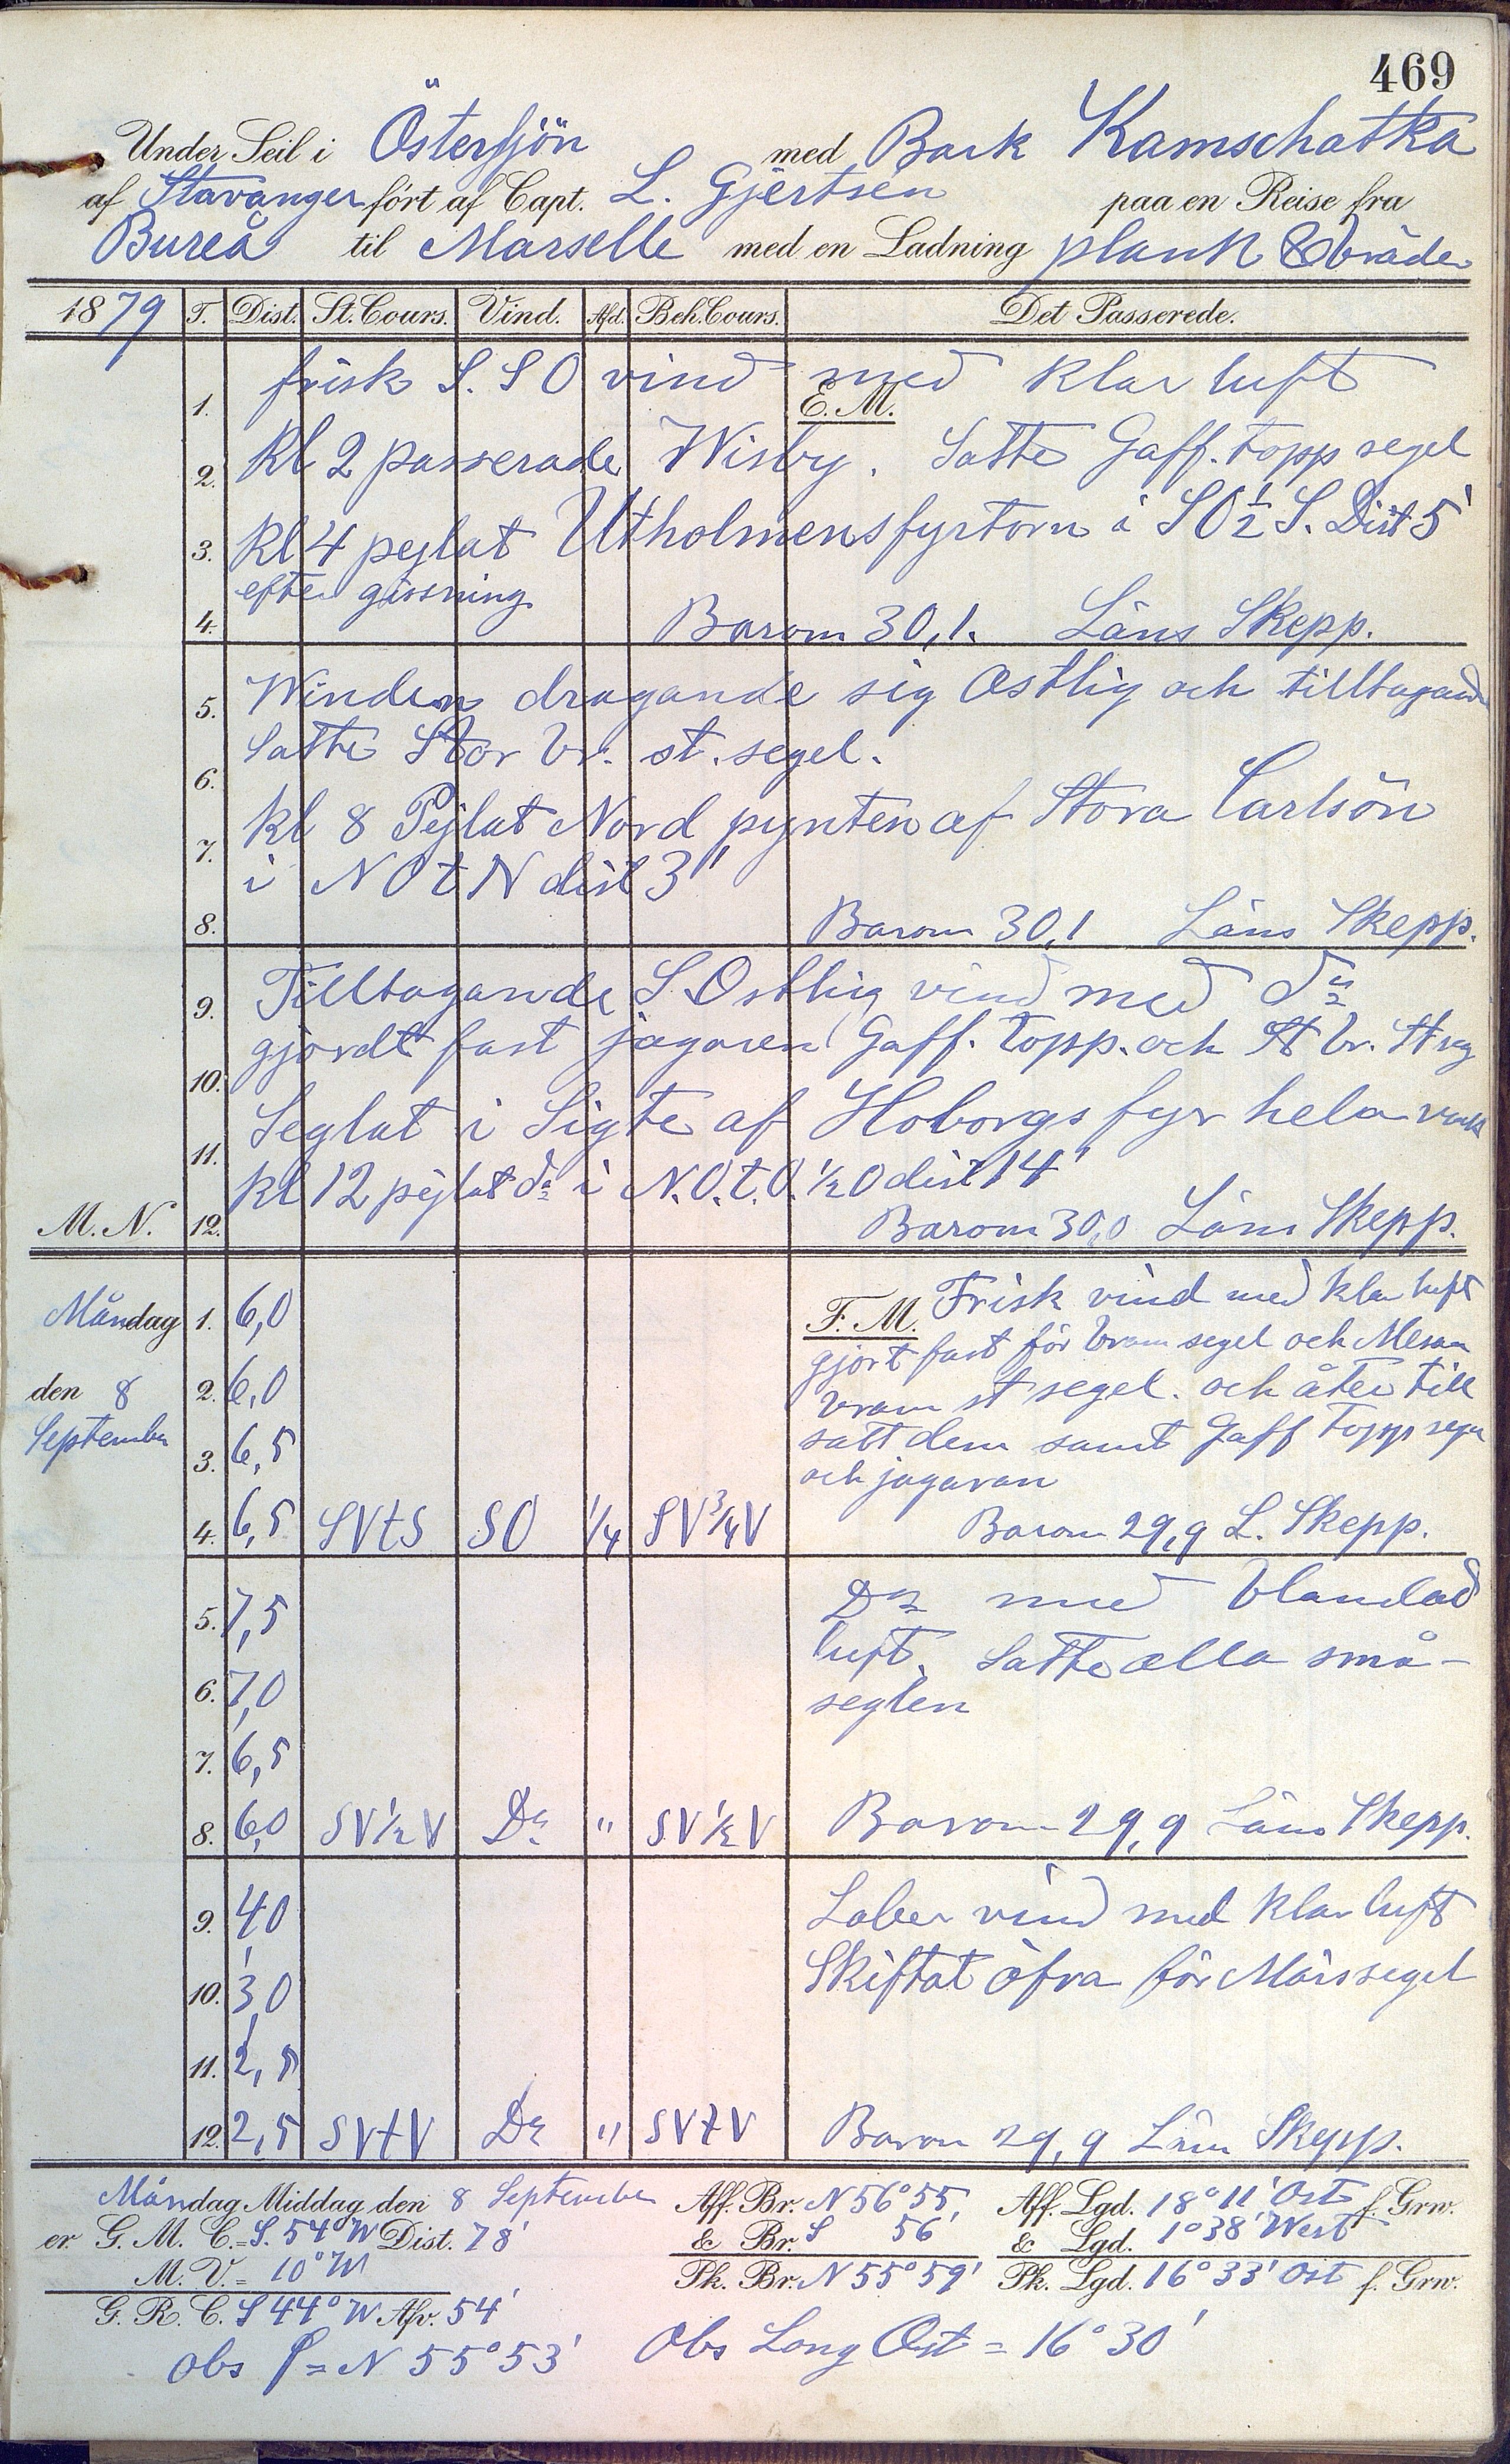 469
Under Seil i Östersjön med Bark Kamschatka
af Stavanger ført af Capt. L. Gjertsen paa en Reise fra
Bureå til Marselle med en Ladning plank & bräder
1879 T. Dist. St. Cours. Vind. Afd. Beh. Cours. Det Passerede.
frisk S.SO vind med klar luft
1. E. M.
2. Kl 2 passerade Wisby. Satte Gaff. topp segel
3. Kl 4 pejlat Utholmens fyrtorn i SO ½ S. Dist 5'
efter gissning
4. Barom 30,1. Läns Skepp.
5. Winden dragande sig Ostlig och tilltagande
Satte Stor br. st. segel.
6.
7. kl 8 Pejlat Nord pynten af Stora Carlsön
i NOtN dist 3'
8. Barom 30,1 Läns Skepp.
9. Tilltagande S.Ostlig vind med do
gjordt fast jagaren Gaff. topp. och St br. St seg
10.
11. Seglat i Sigte af Hoborgs fyr hela vakt
kl 12 pejlat do i N.O.t.O. ½ O dist 14'
M. N. 12. Barom 30,0 Läns Skepp.
Måndag 1. 6,0 F. M. Frisk vind med klar luft
gjort fast för bram segel och Mesan
den 8 2. 6,0 bram st segel. och åter till
September 3. 6,5 satt dem samt Gaff Topp segel
och jagaran
4. 6,5 SVtS SO ¼ SV ¾ V Barom 29,9 L. Skepp.
5. 7,5 Do med blandad
6. 7,0 luft. Satte alla små-
seglen
7. 6,5
8. 6,0 SV ½ V Do " SV ½ V Barom 29,9 Läns Skepp.
9. 4,0 Laber vind med klar luft
10. 3,0 Skiftat öfra för Märssegel
11. 2,5
12. 2,5 SVtV Do " SVtV Barom 29,9 Läns Skepp.
Måndag Middag den 8 September Aff. Br. N 56°55' Aff. Lgd. 18°11' Ost f. Grw.
er G. M. C. = S. 54° W Dist. 78' & Br. S 56' & Lgd. 1°38' West
M. V. = 10° W Pk. Br. N 55°59' Pk. Lgd. 16°33' Ost f. Grw.
G. R. C. S 44° W Afv. 54'
Obs = N 55°53' Obs Long Ost = 16°30'